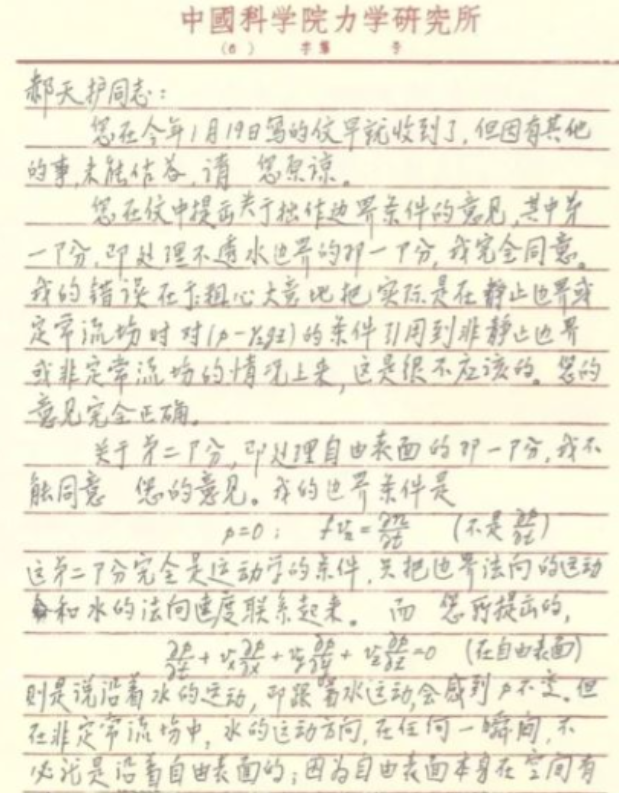 中國科学院力学研究所
(6) 字第 号
郝天护同志：
您在今年1月19日写的信早就收到了，但因有其他
的事，未能作答，请 您原谅。
您在信中提出关于拙作边界条件的意见，其中第
一卩分，即处理不透水边界的那一卩分，我完全同意。
我的错误在于粗心大意地把实际是在静止边界或
定常流场时对(p-γ₂gz)的条件引用到非静止边界
或非定常流场的情况上来，这是很不应该的。您的
意见完全正确。
关于第二卩分，即处理自由表面的那一卩分，我不
能同意 您的意见。我的边界条件是
p=0； (不是 ∂p/∂t)
这第二卩分完全是运动学的条件，只把边界法向的运动
和水的法向速度联系起来。 而 您所提出的，
∂p/∂t + vₓ ∂p/∂x + vᵧ ∂p/∂y + v_z ∂p/∂z = 0 (在自由表面)
则是说沿着水的运动，即跟着水运动，会感到p不变。但
在非定常流场中，水的运动方向，在任何一瞬间，不
必说是沿着自由表面的；因为自由表面本身在空间有